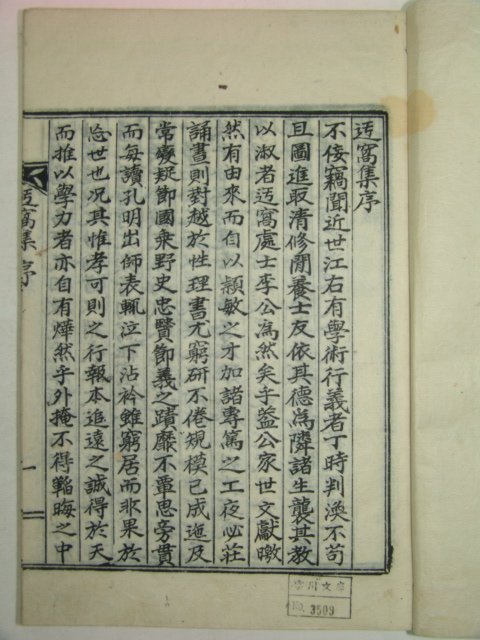 迃窩集序
不佞竊聞近世江右有學術行義者丁時判渙不苟
且圖進取清修閒養士友依其德爲隣諸生襲其敎
以淑者迃窩處士李公爲然矣乎盖公家世文獻暾
然有由來而自以穎敏之才加諸專篤之工夜必莊
誦晝則對越於性理書尤窮研不倦規模已成迤及
常變疑節國乘野史忠賢節義之蹟靡不覃思旁貫
而每讀孔明出師表輒泣下沾衿雖窮居而非果於
忘世也况其惟孝可則之行報本追遠之誠得於天
而推以學力者亦自有燁然乎外掩不得韜晦之中
迃窩集 序
一
文庫
NO. 3509